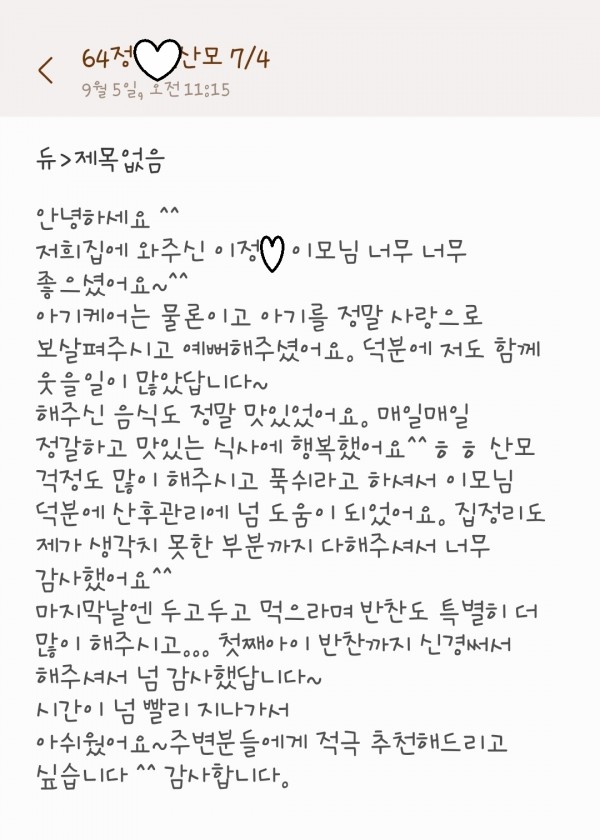 64정♡산모 7/4
9월 5일, 오전 11:15
듀>제목없음
안녕하세요 ^^
저희집에 와주신 이정♡이모님 너무 너무
좋으셨어요~^^
아기케어는 물론이고 아기를 정말 사랑으로
보살펴주시고 예뻐해주셨어요. 덕분에 저도 함께
웃을일이 많았답니다~
해주신 음식도 정말 맛있었어요. 매일매일
정갈하고 맛있는 식사에 행복했어요^^ ㅎ ㅎ 산모
걱정도 많이 해주시고 푹쉬라고 하셔서 이모님
덕분에 산후관리에 넘 도움이 되었어요. 집정리도
제가 생각치 못한 부분까지 다해주셔서 너무
감사했어요^^
마지막날엔 두고두고 먹으라며 반찬도 특별히 더
많이 해주시고... 첫째아이 반찬까지 신경써서
해주셔서 넘 감사했답니다~
시간이 넘 빨리 지나가서
아쉬웠어요~주변분들에게 적극 추천해드리고
싶습니다 ^^ 감사합니다.